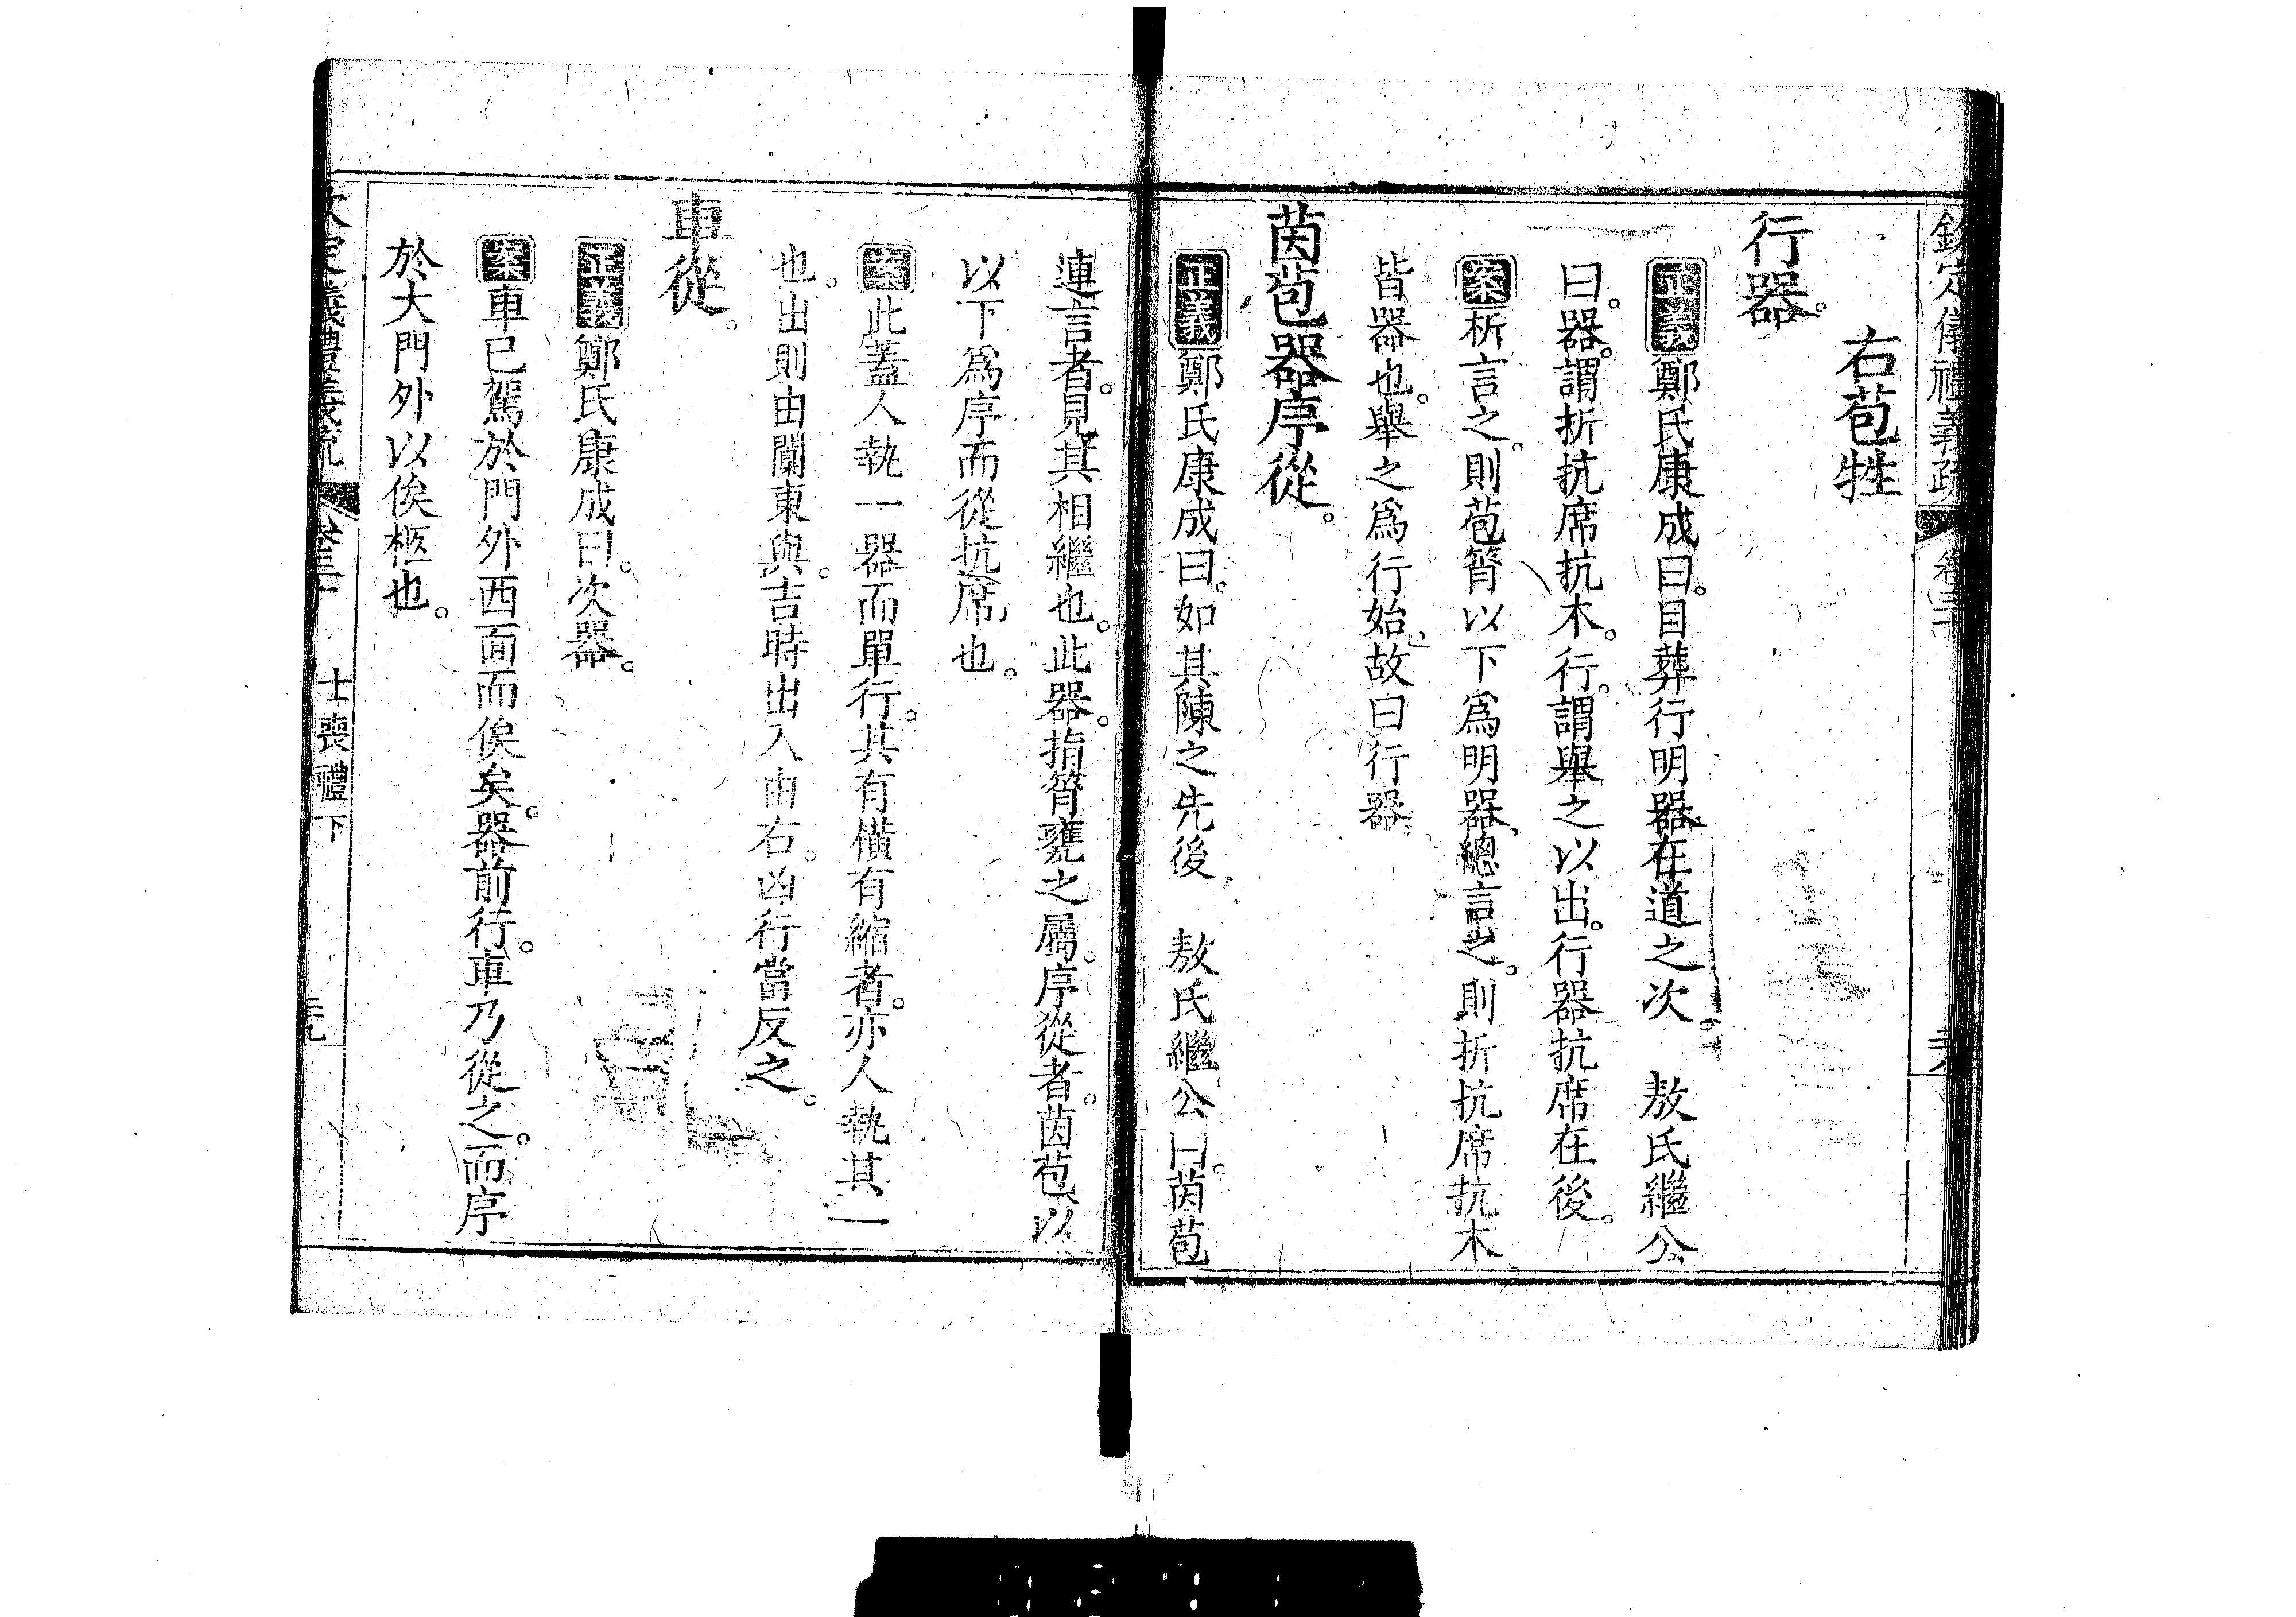 欽定儀禮義疏 卷三十
右苞牲
行器。
正義鄭氏康成曰。目葬行明器在道之次。 敖氏繼公
曰。器。謂折抗席抗木。行。謂舉之以出。行器抗席在後。
案析言之。則苞筲以下爲明器。總言之。則折抗席抗木
皆器也。舉之爲行始。故曰行器。
茵苞器序從。
正義鄭氏康成曰。如其陳之先後。 敖氏繼公曰。茵苞
連言者。見其相繼也。此器。指筲甕之屬。序從者。茵苞以
以下爲序而從抗席也。
案此蓋人執一器而單行。其有橫有縮者。亦人執其一
也。出則由闑東與。吉時出入由右。凶行當反之。
車從。
正義鄭氏康成曰。次器。
案車已駕於門外西面而俟矣。器前行。車乃從之。而序
於大門外以俟柩也。
欽定儀禮義疏 卷三十 士喪禮下